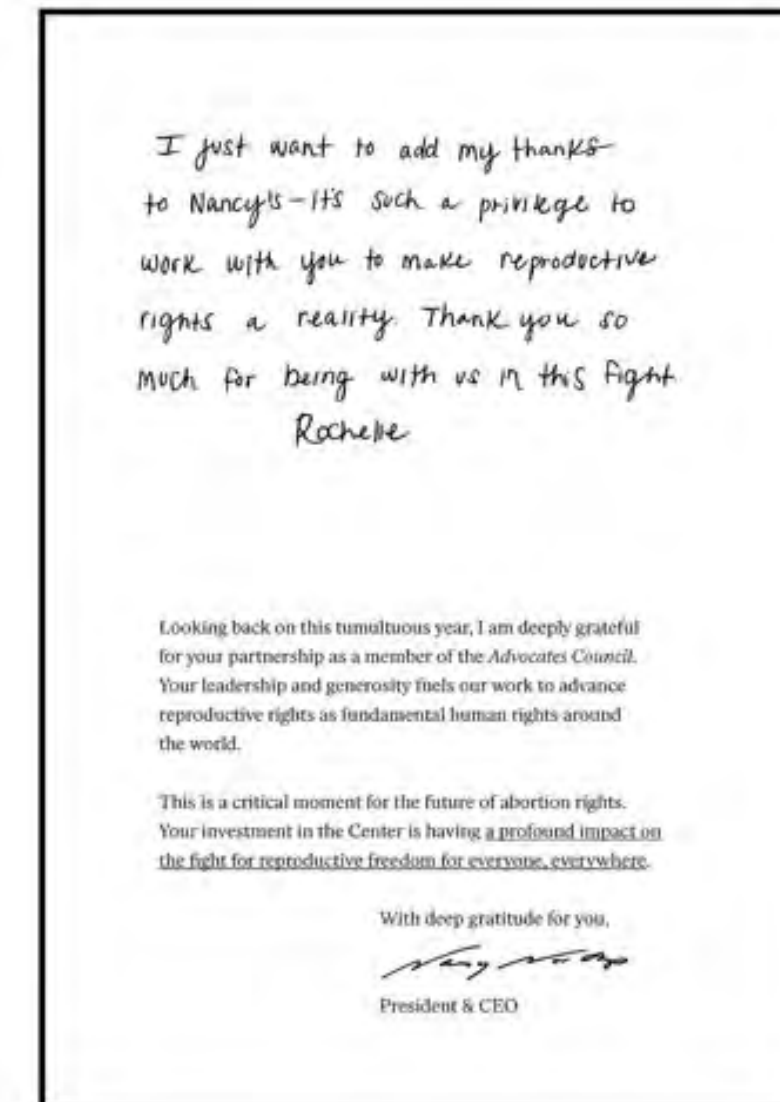 I just want to add my thanks
to Nancy's - it's such a privilege to
work with you to make reproductive
rights a reality. Thank you so
much for being with us in this fight
Rochelle
Looking back on this tumultuous year, I am deeply grateful
for your partnership as a member of the Advocates Council.
Your leadership and generosity fuels our work to advance
reproductive rights as fundamental human rights around
the world.
This is a critical moment for the future of abortion rights.
Your investment in the Center is having a profound impact on
the fight for reproductive freedom for everyone, everywhere.
With deep gratitude for you,
Nancy
President & CEO